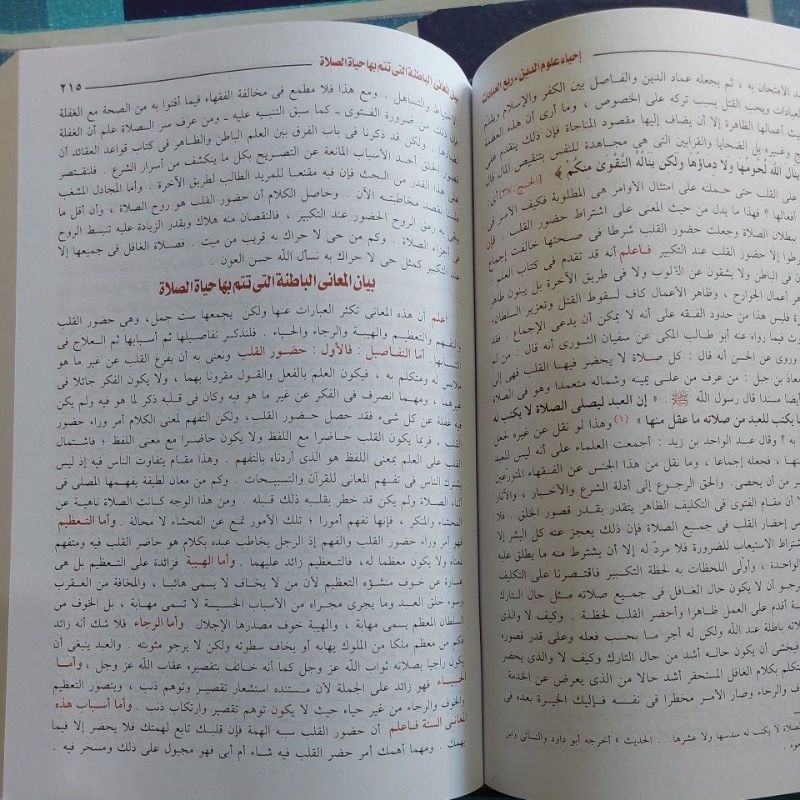 إحياء علوم الدين - ربع العبادات
الامتحان به ، ثم يجعله عماد الدين والفاصل بين الكفر والإسلام ويقدم
العبادات ويجب القتل بسبب تركه على الخصوص ، وما أرى أن هذه العظمة
أعمالها الظاهرة إلا أن يضاف إليها مقصود المناجاة فإن ذلك يتقدم على
وغيره بل الضحايا والقرابين التى هى مجاهدة للنفس بتنقيص المال قال
ينال الله لحومها ولا دماؤها ولكن يناله التقوى منكم ﴾ [الحج: ٣٧] أى
على القلب حتى حملته على امتثال الأوامر هى المطلوبة فكيف الأمر فى
أفعالها ؟ فهذا ما يدل من حيث المعنى على اشتراط حضور القلب . فإن
ببطلان الصلاة وجعلت حضور القلب شرطا فى صحتها خالفت إجماع
إلا حضور القلب عند التكبير فاعلم أنه قد تقدم فى كتاب العلم :
فى الباطن ولا يشقون عن القلوب ولا فى طريق الآخرة بل يبنون ظاهر
أعمال الجوارح ، وظاهر الأعمال كاف لسقوط القتل وتعزير السلطان؛
فليس هذا من حدود الفقه على أنه لا يمكن أن يدعى الإجماع . فقد
فيما رواه عنه أبو طالب المكى عن سفيان الثورى أنه قال : من لم
وروى عن الحسن أنه قال : كل صلاة لا يحضر فيها القلب فهى إلى
بن جبل : من عرف من على يمينه وشماله متعمدا وهو فى الصلاة
أيضا مسندا قال رسول الله ﷺ : « إن العبد ليصلى الصلاة لا يكتب له
يكتب للعبد من صلاته ما عقل منها » (١) وهذا لو نقل عن غيره لجعل
به ؟ وقال عبد الواحد بن زيد : أجمعت العلماء على أنه ليس للعبد
، فجعله إجماعا ، وما نقل من هذا الجنس عن الفقهاء المتورعين
من أن يحصى. والحق الرجوع إلى أدلة الشرع والأخبار ، والآثار
أن مقام الفتوى فى التكليف الظاهر يتقدر بقدر قصور الخلق . فلا
إحضار القلب فى جميع الصلاة فإن ذلك يعجز عنه كل البشر إلا
اشتراط الاستيعاب للضرورة فلا مرد له إلا أن يشترط منه ما يطلق عليه
الواحدة ، وأولى اللحظات به لحظة التكبير فاقتصرنا على التكليف
نرجو أن لا يكون حال الغافل فى جميع صلاته مثل حال التارك
أقدم على العمل ظاهرا وأحضر القلب لحظة . وكيف لا والذى
صلاته باطلة عند الله ولكن له أجر ما بحسب فعله وعلى قدر قصوره
فيخشى أن يكون حاله أشد من حال التارك وكيف لا والذى يحضر
يتكلم بكلام الغافل المستحقر أشد حالا من الذى يعرض عن الخدمة.
الخوف والرجاء وصار الأمر مخطرا فى نفسه فإليك الخيرة بعده فى
الصلاة لا يكتب له سدسها ولا عشرها . . . الحديث » أخرجه أبو داود والنسائى وابن
بيان المعانى الباطنة التى تتم بها حياة الصلاة
٢١٥
الاحتياط والتساهل . ومع هذا فلا مطمع فى مخالفة الفقهاء فيما أفتوا به من الصحة مع الغفلة
فإن ذلك من ضرورة الفتوى - كما سبق التنبيه عليه - ومن عرف سر الصلاة علم أن الغفلة
تضادها . ولكن قد ذكرنا فى باب الفرق بين العلم الباطن والظاهر فى كتاب قواعد العقائد أن
قصور الخلق أحد الأسباب المانعة عن التصريح بكل ما ينكشف من أسرار الشرع . فلنقتصر
على هذا القدر من البحث فإن فيه مقنعا للمريد الطالب لطريق الآخرة . وأما المجادل المشغب
فلسنا نقصد مخاطبته الآن . وحاصل الكلام أن حضور القلب هو روح الصلاة ، وأن أقل ما
يبقى به رمق الروح الحضور عند التكبير ، فالنقصان منه هلاك وبقدر الزيادة عليه تنبسط الروح
فى أجزاء الصلاة . وكم من حى لا حراك به قريب من ميت . فصلاة الغافل فى جميعها إلا
عند التكبير كمثل حى لا حراك به نسأل الله حسن العون .
بيان المعانى الباطنة التى تتم بها حياة الصلاة
اعلم أن هذه المعانى تكثر العبارات عنها ولكن يجمعها ست جمل، وهى حضور القلب
والتفهم والتعظيم والهيبة والرجاء والحياء . فلنذكر تفاصيلها ثم أسبابها ثم العلاج فى
اكتسابها. أما التفاصيل : فالأول : حضور القلب ونعنى به أن يفرغ القلب عن غير ما هو
ملابس له ومتكلم به ، فيكون العلم بالفعل والقول مقرونا بهما ، ولا يكون الفكر جائلا فى
غيرهما ، ومهما انصرف فى الفكر عن غير ما هو فيه وكان فى قلبه ذكر لما هو فيه ولم يكن
فيه غفلة عن كل شىء فقد حصل حضور القلب، ولكن التفهم لمعنى الكلام أمر وراء حضور
القلب ، فربما يكون القلب حاضرا مع اللفظ ولا يكون حاضرا مع معنى اللفظ ؛ فاشتمال
القلب على العلم بمعنى اللفظ هو الذى أردناه بالتفهم . وهذا مقام يتفاوت الناس فيه إذ ليس
يشترك الناس فى تفهم المعانى للقرآن والتسبيحات . وكم من معان لطيفة يفهمها المصلى فى
أثناء الصلاة ولم يكن قد خطر بقلبه ذلك قبله . ومن هذا الوجه كانت الصلاة ناهية عن
الفحشاء والمنكر ، فإنها تفهم أمورا ؛ تلك الأمور تمنع عن الفحشاء لا محالة . وأما التعظيم
فهو أمر وراء حضور القلب والفهم إذ الرجل يخاطب عبده بكلام هو حاضر القلب فيه ومتفهم
لمعناه ولا يكون معظما له، فالتعظيم زائد عليهما . وأما الهيبة فزائدة على التعظيم بل هى
عبارة عن خوف منشؤه التعظيم لأن من لا يخاف لا يسمى هائبا ، والمخافة من العقرب
وسوء خلق العبد وما يجرى مجراه من الأسباب الخسيسة لا تسمى مهابة ، بل الخوف من
السلطان المعظم يسمى مهابة ، والهيبة خوف مصدرها الإجلال . وأما الرجاء فلا شك أنه زائد
فكم من معظم ملكا من الملوك يهابه أو يخاف سطوته ولكن لا يرجو مثوبته . والعبد ينبغى أن
يكون راجيا بصلاته ثواب الله عز وجل كما أنه خائف بتقصيره عقاب الله عز وجل ، وأما
الحياء فهو زائد على الجملة لأن مستنده استشعار تقصير وتوهم ذنب ، ويتصور التعظيم
والخوف والرجاء من غير حياء حيث لا يكون توهم تقصير وارتكاب ذنب . وأما أسباب هذه
المعانى الستة فاعلم أن حضور القلب سببه الهمة فإن قلبك تابع لهمتك فلا يحضر إلا فيما
يهمك . ومهما أهمك أمر حضر القلب فيه شاء أم أبى فهو مجبول على ذلك ومسخر فيه .